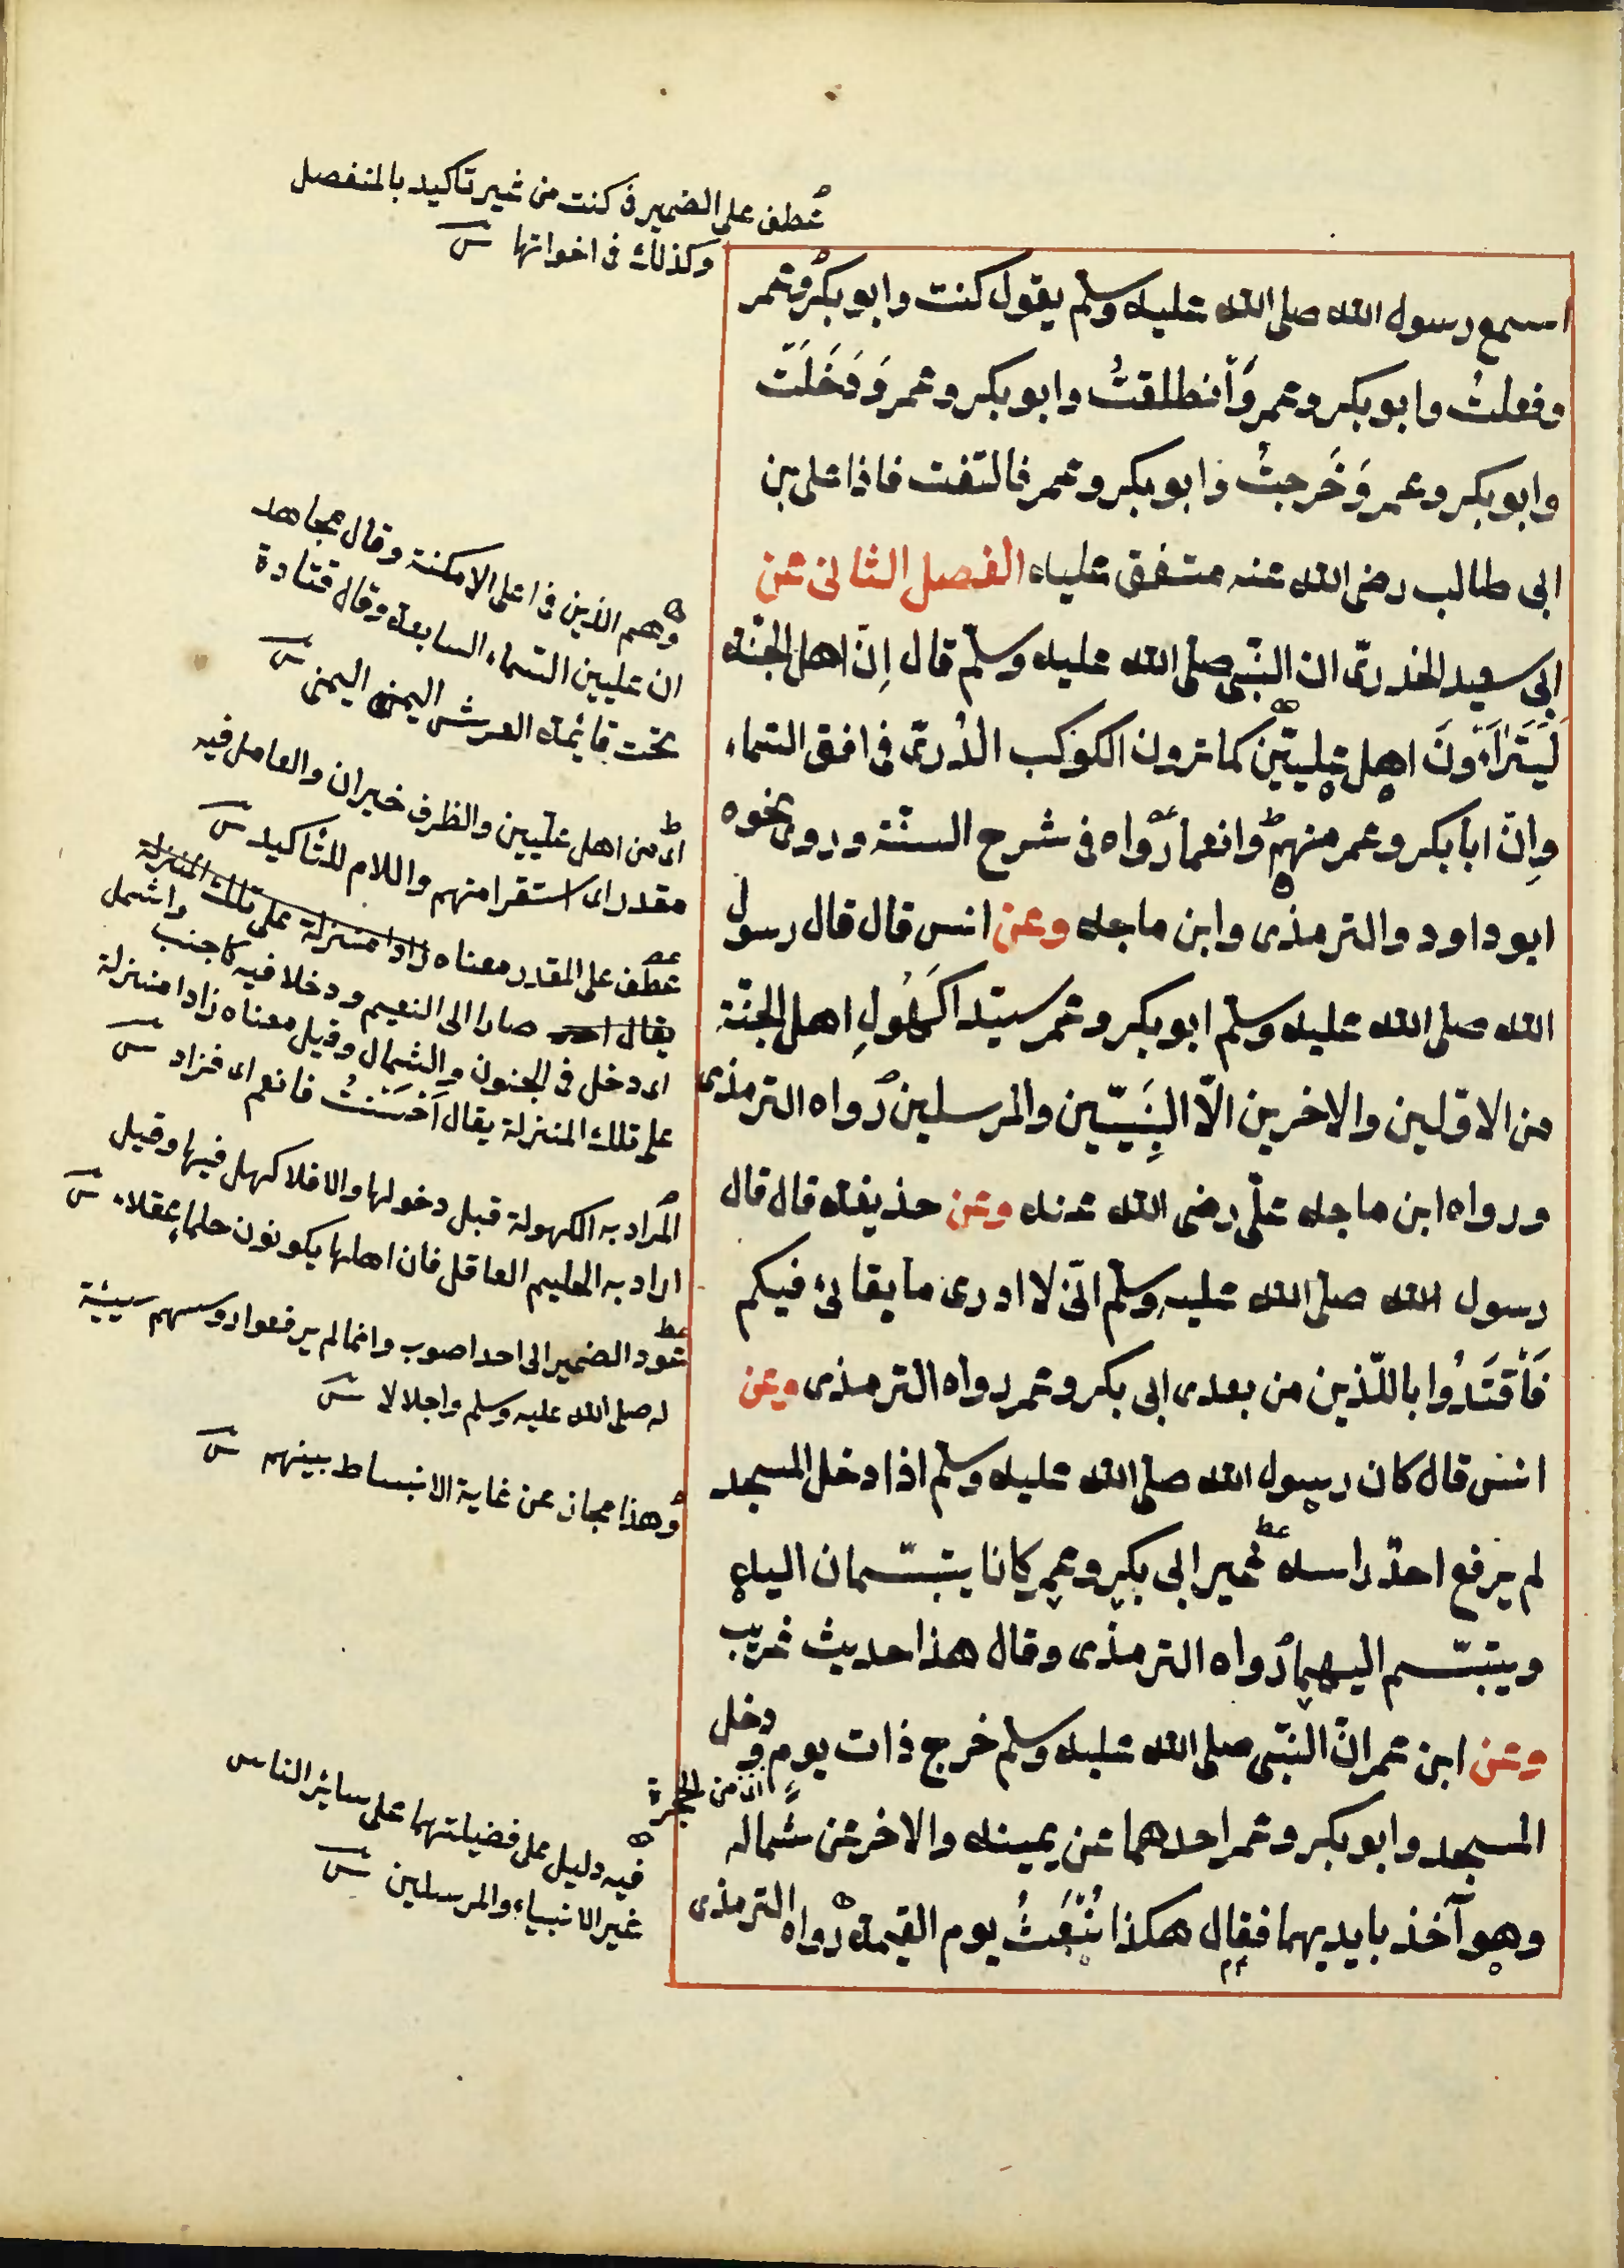 اسمع رسول الله صلى الله عليه وسلم يقول كنت وابو بكر وعمر
وفعلتُ وابو بكر وعمر وَانطلقتُ وابو بكر وعمر وَدَخَلَتُ
وابو بكر وعمر وَخَرجتُ وابو بكر وعمر فالتفت فاذا على بن
ابى طالب رضى الله عنه متفق عليه الفصل الثانى عن
ابى سعيد الخدرىّ ان النبّى صلى الله عليه وسلّم قال اِنّ اهل الجنّة
لَيَتَرَآءَونَ اهل علّيّين كما ترون الكوكب الدُرىّ فى افق السّماء
واِنّ ابا بكر وعمر منهم وانعما رواه فى شرح السنّة وروى نحوه
ابو داود والترمذى وابن ماجه وعن انس قال قال رسول
الله صلى الله عليه وسلم ابو بكر وعمر سيّدا كَهُولِ اهل الجنّة
من الاوّلين والاخرين الّا النَبِيّين والمرسلين رواه الترمذى
ورواه ابن ماجه علّى رضى الله عنه وعن حذيفة قال قال
رسول الله صلى الله عليه وسلم انّى لا ادرى ما بقائى فيكم
فَاقْتَدُوا باللّذين من بعدى ابى بكر وعمر رواه الترمذى وعن
انس قال كان رسول الله صلى الله عليه وسلم اذا دخل المسجد
لم يرفع احدٌ راسه غير ابى بكر وعمر كانا يتبسّمان اليه
ويتبسّم اليهما رواه الترمذى وقال هذا حديث غريب
وعن ابن عمر انّ النبّى صلى الله عليه وسلم خرج ذات يوم ودخل
المسجد وابو بكر وعمر احدهما عن يمينه والاخر عن شماله
وهو آخذ بايديهما فقال هكذا نُبْعَثُ يوم القيمة رواه الترمذى
عطف على الضمير فى كنت من غير تاكيد بالمنفصل
وكذلك فى اخواتها
وهم الذين فى اعلى الامكنة وقال مجاهد
ان عليين السّماء السابعة وقال قتادة
تحت قايمة العرش اليمنى اليمنى
اى من اهل علّيين والظرف خبر ان والعامل فيه
مقدر اى استقرا منهم واللام للتاكيد
عطف على المقدر معناه زادا منزلة على تلك المنزلة
يقال صارا الى النعيم ودخلا فيه كاجنب واشمل
اى دخل فى الجنون والشمال وقيل معناه زادا منزلة
على تلك المنزلة يقال اَحْسَنْتُ فانعم اى فزاد
المراد به الكهولة قبل دخولها والا فلا كهل فيها وقيل
اراد به الحليم العاقل فان اهلها يكونون حلماء عقلاء
عود الضمير الى احد اصوب وانما لم يرفعوا روسهم
له صلى الله عليه وسلم واجلالا
وهذا مجاز عن غاية الانبساط بينهم
اى من الحجرة
فيه دليل على فضيلتهما على ساير الناس
غير الانبياء والمرسلين